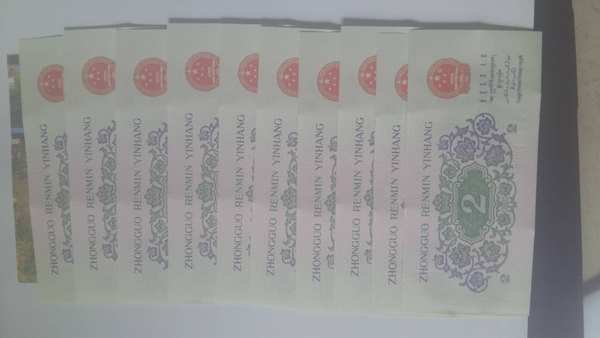 ZHONGGUO RENMIN YINHANG
ZHONGGUO RENMIN YINHANG
ZHONGGUO RENMIN YINHANG
ZHONGGUO RENMIN YINHANG
ZHONGGUO RENMIN YINHANG
ZHONGGUO RENMIN YINHANG
ZHONGGUO RENMIN YINHANG
ZHONGGUO RENMIN YINHANG
ZHONGGUO RENMIN YINHANG
ZHONGGUO RENMIN YINHANG
2
2
2